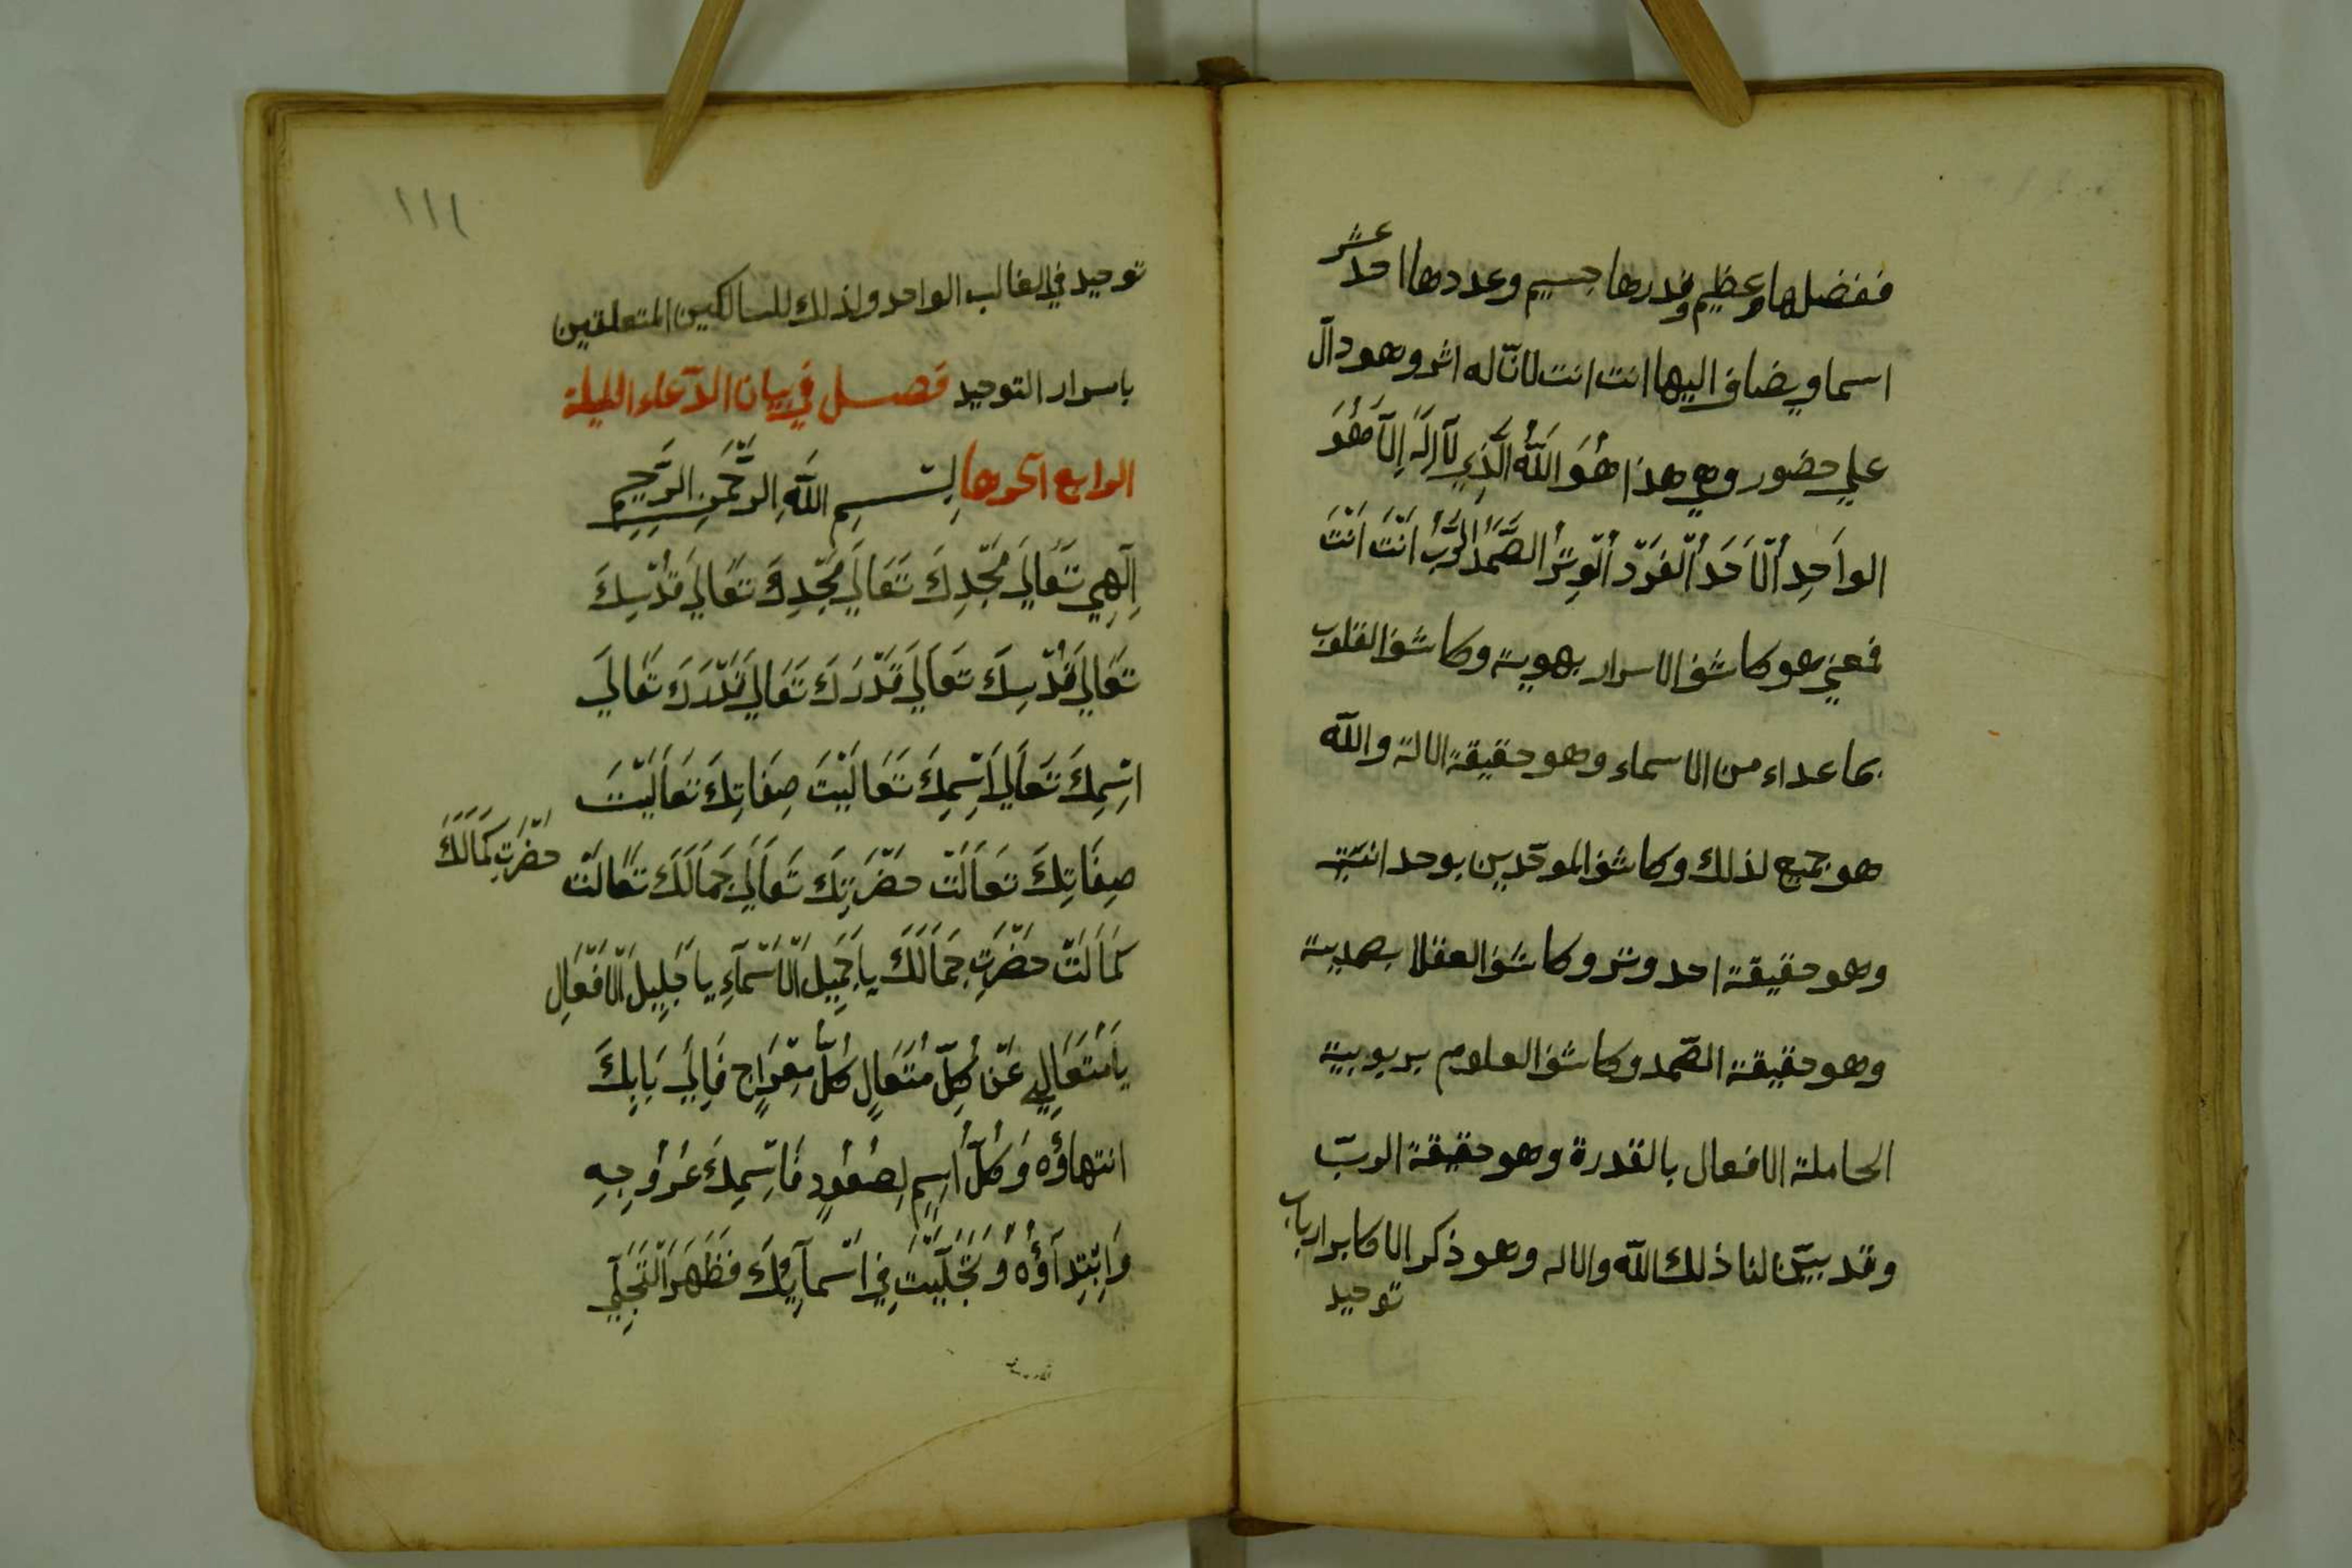 ففضلها عظيم وقدرها جسيم وعددها احد عشر
اسما ويضاف اليها انت انت لانّ له اثر وهو دالّ
علي حضور وهي هذا هُوَ اللَّهُ الَّذِي لَآاِلَهَ اِلَّا هُوَ
الواَحِدُ الْاَحَدُ الْفَرْدُ الْوِتْرُ الصَّمَدُ الرَّبُّ اَنْتَ اَنْتَ
فمعني هو كاشف الاسرار بهوية وكاشف القلوب
بما عداء من الاسماء وهو حقيقة الالة واللّه
هو جميع لذلك وكاشف الموحّدين بوحدانيّة
وهو حقيقة احد وتر وكاشف العقلا بصمدية
وهو حقيقة الصّمد وكاشف العلوم بربوبية
الحاملة الافعال بالقدرة وهو حقيقة الربّ
وقد بيّن لنا ذلك اللّه والاله وهو ذكر الاكابر ارباب
توحيد
١١١
توحيد في الغالب الواحد ولذلك للسالكين المتعلقين
باسرار التوحيد فصل في بيان الدّعاء الليلة
الرابع اخرها بِسْمِ اللَّهِ الرَّحْمَنِ الرَّحِيمِ
اِلَهِي تَعَالَي مَجْدِكَ تَعَالَي مَجْدِكَ تَعَالَي قُدْسِكَ
تَعَالَي قُدْسِكَ تَعَالَي قَدْرَكَ تَعَالَي قَدْرَكَ تَعَالَي
اسْمِكَ تَعَالَي اسْمِكَ تَعَالَيْتَ صِفَاتِكَ تَعَالَيْتَ
صِفَاتِكَ تَعَالَتْ حَضْرَتِكَ تَعَالَي جَمَالَكَ تَعَالَتْ
حَضْرَتِ كَمَالَكَ
كَمَالَتْ حَضْرَتِ جَمَالَكَ يَا جَمِيلَ الْاَسْمَآءِ يَا جَلِيلَ الْاَفْعَالِ
يَا مُتَعَالِي عَنْ كُلِّ مُتَعَالٍ كُلُّ مِعْرَاجٍ فَاِلَي بَابِكَ
انتهاؤُه وَكُلُّ اسِمٍ لِصُعُودٍ فَاسْمِكَ عُرُوجِهِ
وَابْتِدَآؤُهُ وَتَجَلَّيْتَ فِي اَسْمآئِكَ فَظَهَرَ التَّجَلِّي